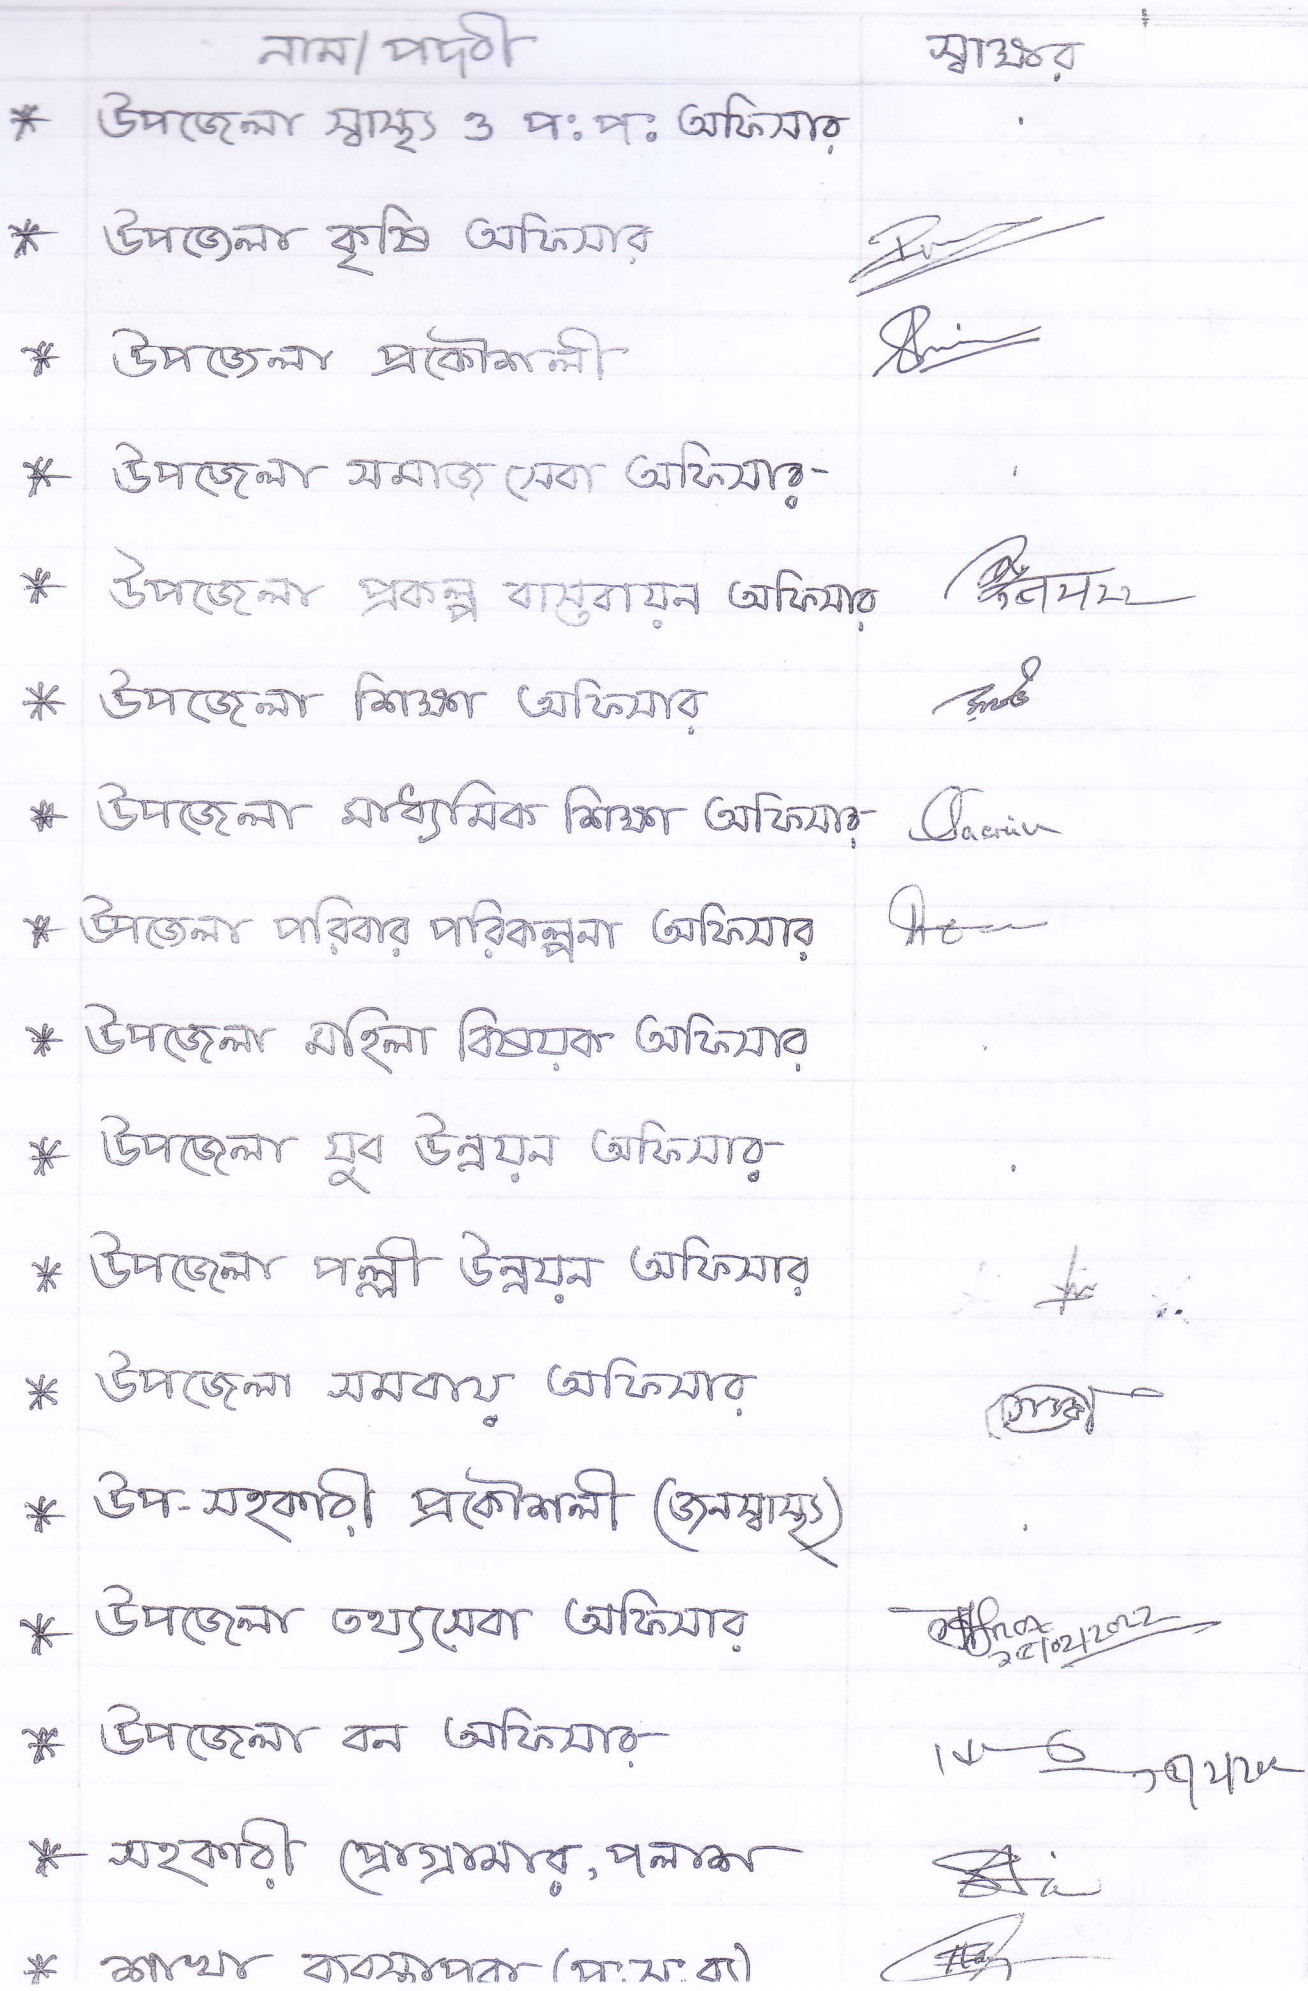 নাম/পদবী স্বাক্ষর
* উপজেলা স্বাস্থ্য ও প: প: অফিসার
* উপজেলা কৃষি অফিসার
* উপজেলা প্রকৌশলী
* উপজেলা সমাজ সেবা অফিসার
* উপজেলা প্রকল্প বাস্তবায়ন অফিসার
* উপজেলা শিক্ষা অফিসার
* উপজেলা মাধ্যমিক শিক্ষা অফিসার
* উপজেলা পরিবার পরিকল্পনা অফিসার
* উপজেলা মহিলা বিষয়ক অফিসার
* উপজেলা যুব উন্নয়ন অফিসার
* উপজেলা পল্লী উন্নয়ন অফিসার
* উপজেলা সমবায় অফিসার
* উপ-সহকারী প্রকৌশলী (জনস্বাস্থ্য)
* উপজেলা তথ্যসেবা অফিসার ১৫/০২/২০২২
* উপজেলা বন অফিসার
* সহকারী প্রোগ্রামার, পলাশ
* শাখা ব্যবস্থাপক (প. স. ব্যা)